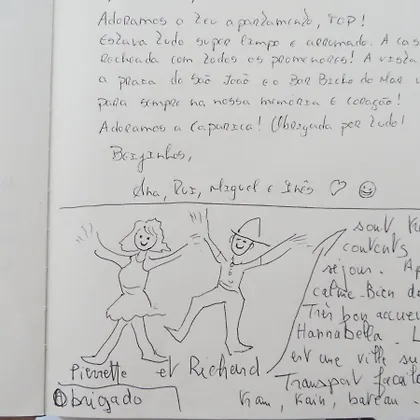 Adoramos o teu apartamento, TOP!
Estava tudo super limpo e arrumado. A cas
Recheada com todos os promenores! A vista
a praia de São João e o Bar Bicho do Mar
para sempre na nossa memória e coração!
Adoramos a Caparica! Obrigada por tudo!
Beijinhos,
Ana, Rui, Miguel e Inês
sont
contents
séjour. Ap
calme. Bien
Très bon accue
Hannabella. L
Pierrette et Richard
est une ville su
Transport facile
Obrigado
tram, train, bateau